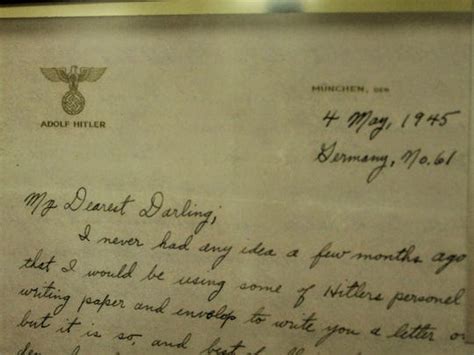 MÜNCHEN, DEN
ADOLF HITLER
4 May, 1945
Germany, No. 61
My Dearest Darling;
I never had any idea a few months ago
that I would be using some of Hitlers personel
writing paper and envelop to write you a letter on
but it is so, and best of all